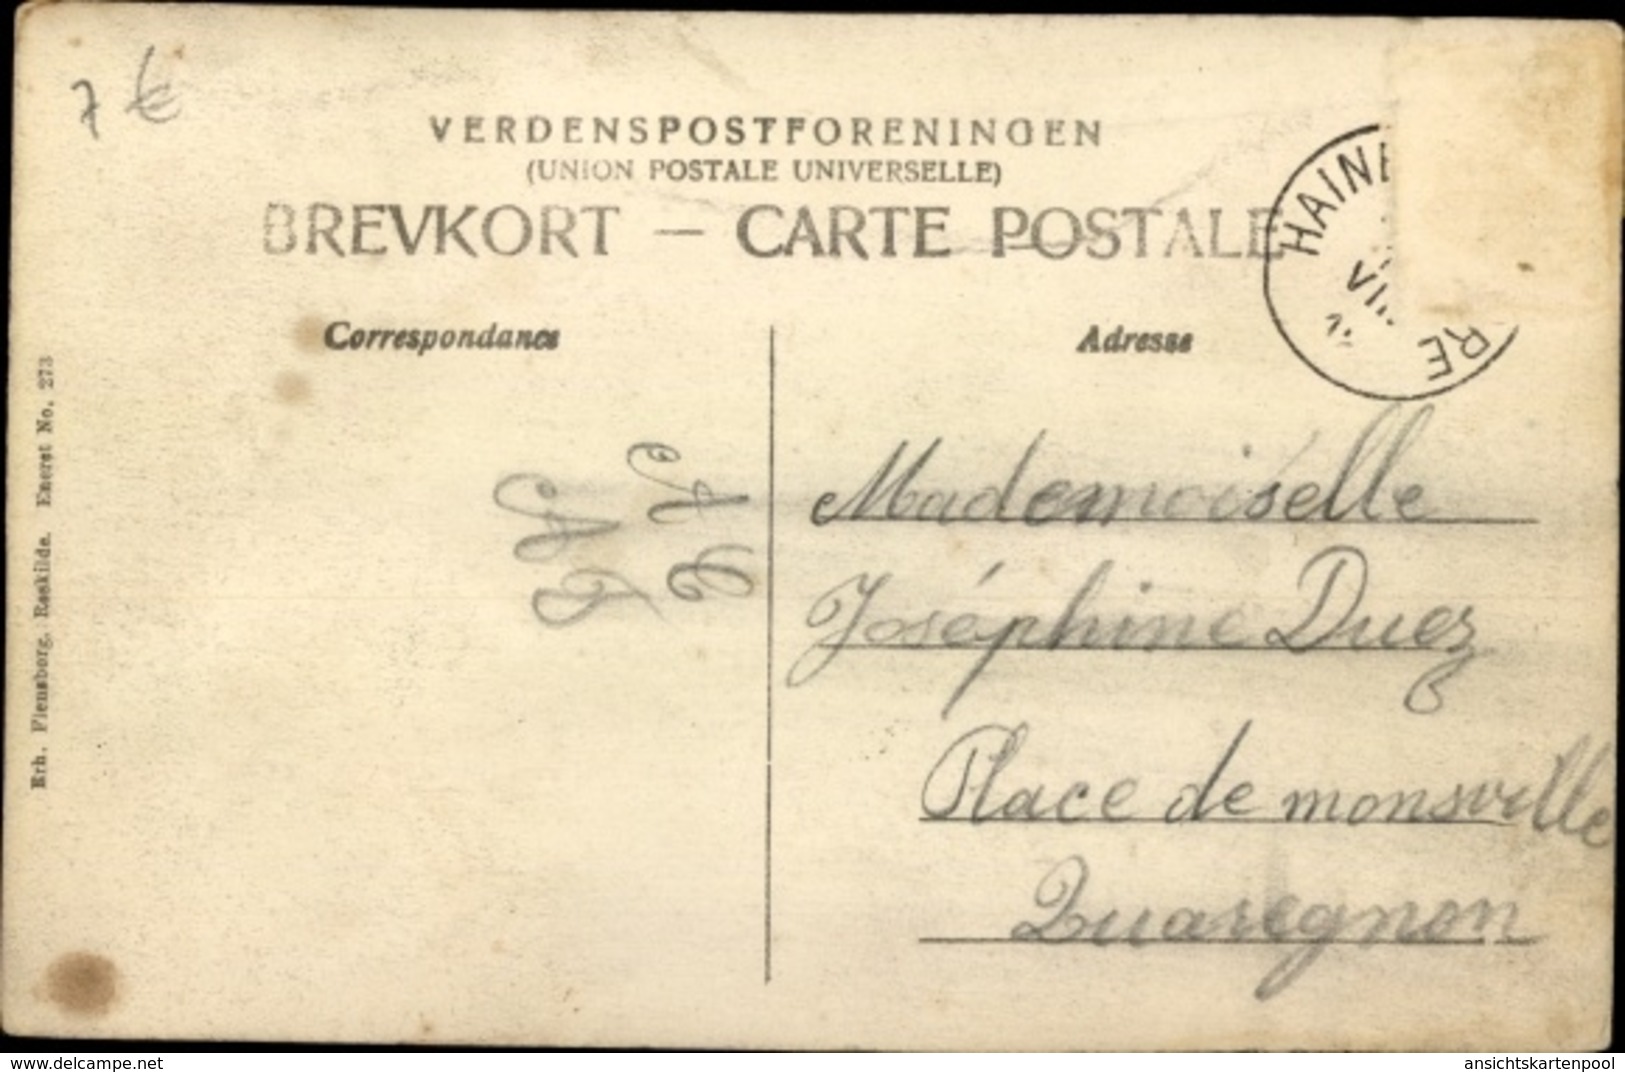 7 €
VERDENSPOSTFORENINGEN
(UNION POSTALE UNIVERSELLE)
BREVKORT — CARTE POSTALE
HAINE
VII
RE
Correspondance
Adresse
Mademoiselle
Joséphine Duez
Place de monsville
Quaregnon
Erh. Flensborg, Roskilde. Eneret No. 273
the delcampe.net
ansichtskartenpool